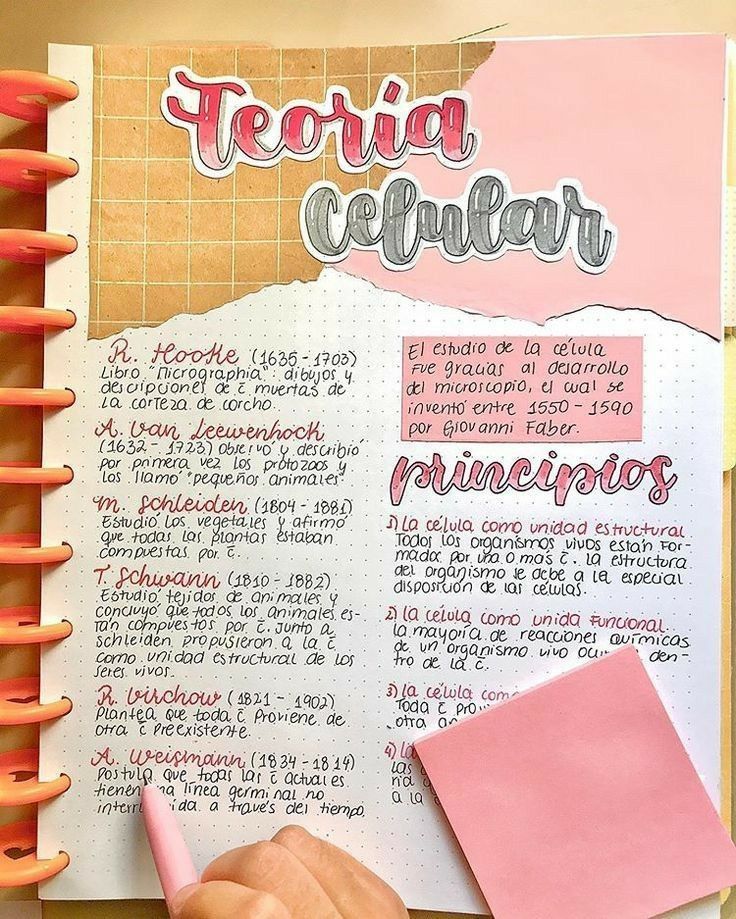 Teoría
celular
R. Hooke (1635 - 1703)
Libro "Micrographia": dibujos y
descripciones de c̄ muertas de
la corteza de corcho.
A. Van Leewenhock
(1632 - 1723) observó y describió
por primera vez los protozoos y
los llamó "pequeños animales"
M. Schleiden (1804 - 1881)
Estudió los vegetales y afirmó
que todas las plantas estaban
compuestas por c̄.
T. Schwann (1810 - 1882)
Estudió tejidos de animales y
concluyó que todos los animales es-
tan compuestos por c̄. Junto a
schleiden propusieron a la c̄
como unidad estructural de los
seres vivos.
R. Virchow (1821 - 1902)
Plantea que toda c̄ proviene de
otra c̄ preexistente.
A. Weismann (1834 - 1814)
Postula que todas las c̄ actuales
tienen una línea germinal no
a través del tiempo.
El estudio de la célula
fue gracias al desarrollo
del microscopio, el cual se
inventó entre 1550 - 1590
por Giovanni Faber.
principios
1) La célula como unidad estructural
Todos los organismos vivos están for-
mados por una o mas c̄. La estructura
del organismo se debe a la especial
disposición de las células.
2) La célula como unida funcional.
La mayoría de reacciones químicas
de un organismo vivo den-
tro de la c̄.
3) La célula como
Toda c̄
otra
4) La
las
a la